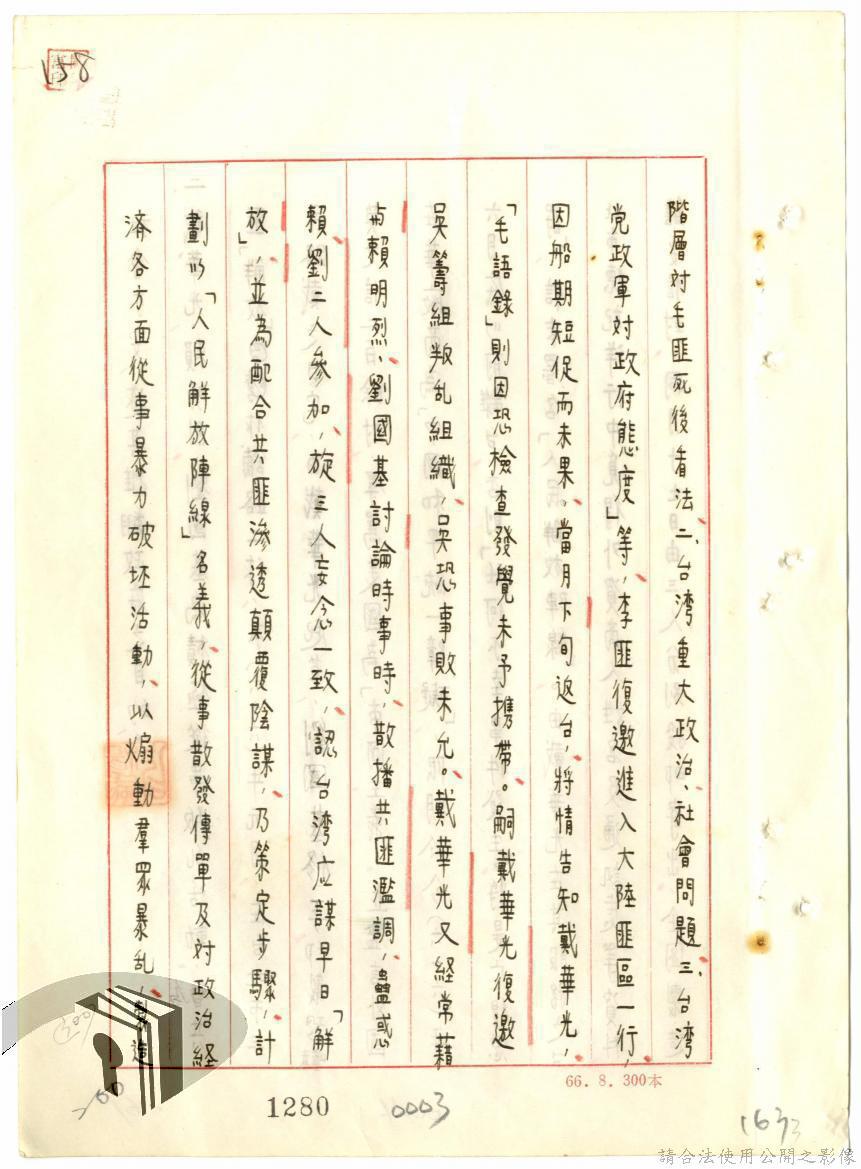 158
階層対毛匪死後看法二、台湾重大政治、社會問題三、台湾
党政軍対政府態度」等，李匪復邀進入大陸匪區一行，
因船期短促而未果，當月下旬返台，將情告知戴華光，
「毛語錄」則因恐檢查發覺未予携帶。嗣戴華光復邀
吳籌組叛乱組織，吳恐事敗未允。戴華光又経常藉
与賴明烈、劉國基討論時事時，散播共匪濫調，蠱惑
賴劉二人參加，旋三人妄念一致，認台湾应謀早日「解
放」，並為配合共匪滲透顛覆陰謀，乃策定步驟，計
劃以「人民解放陣線」名義，從事散發傳單及対政治経
済各方面從事暴力破坏活動，以煽動羣眾暴乱，製造
66.8.300本
1280
0003
請合法使用公開之影像